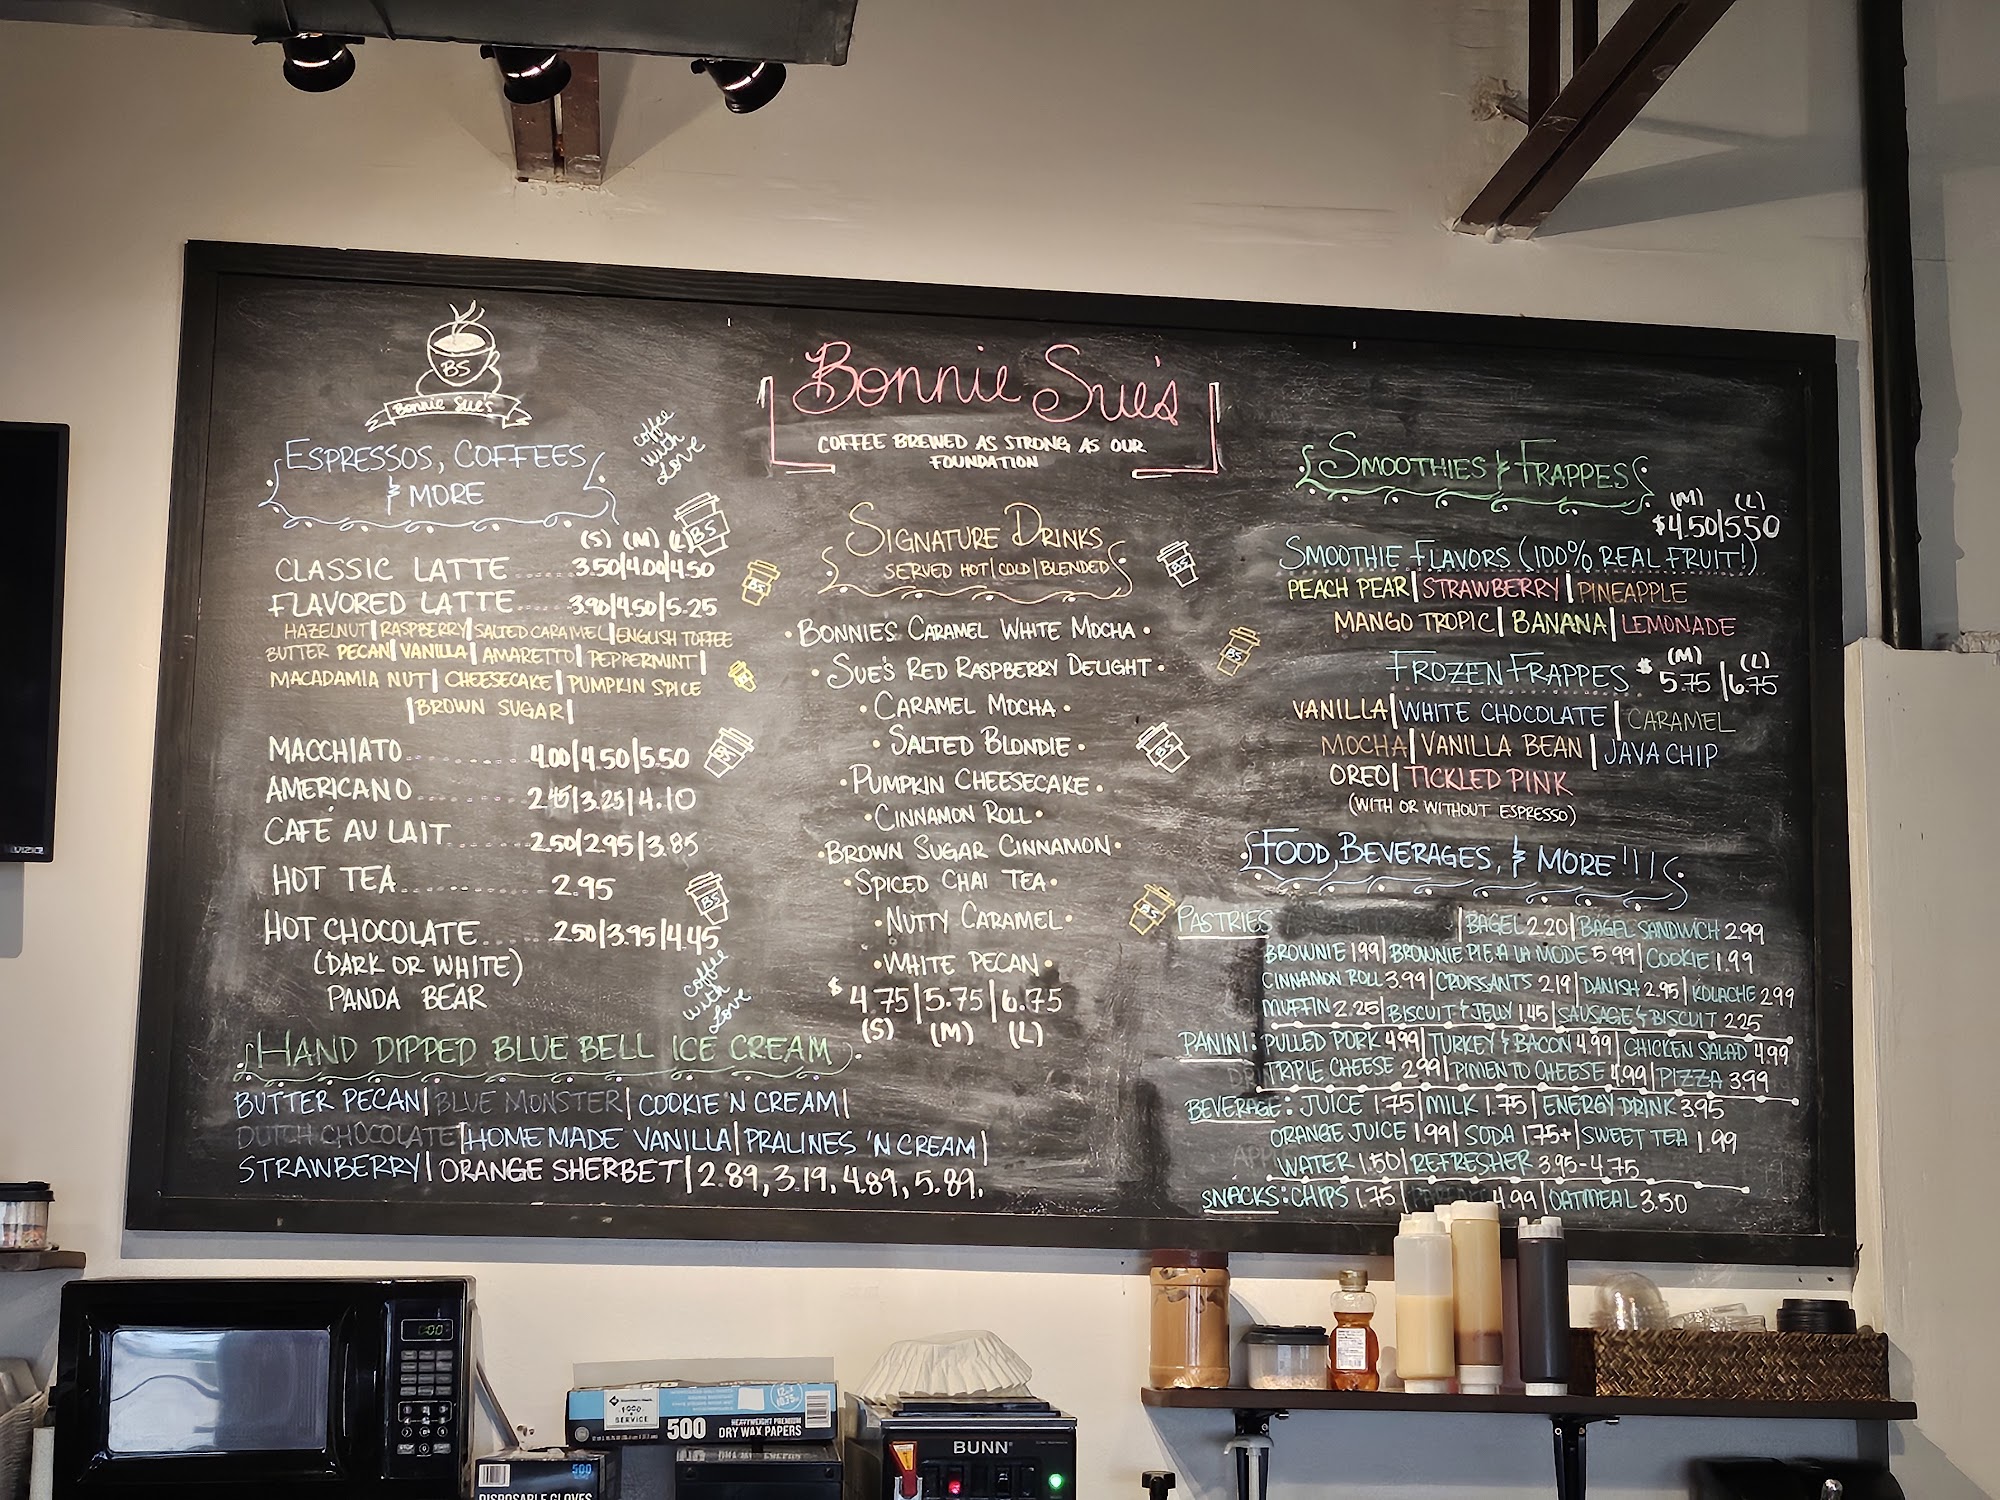 BS
Bonnie Sue's
ESPRESSOS, COFFEES
& MORE
coffee
with
Love
(S) (M) (L)
CLASSIC LATTE ...... 3.50|4.00|4.50
FLAVORED LATTE ...... 3.90|4.50|5.25
HAZELNUT|RASPBERRY|SALTED CARAMEL|ENGLISH TOFFEE
BUTTER PECAN|VANILLA|AMARETTO|PEPPERMINT|
MACADAMIA NUT|CHEESECAKE|PUMPKIN SPICE
|BROWN SUGAR|
MACCHIATO ............ 4.00|4.50|5.50
AMERICANO ............ 2.45|3.25|4.10
CAFÉ AU LAIT ......... 2.50|2.95|3.85
HOT TEA ............ 2.95
HOT CHOCOLATE ...... 2.50|3.95|4.45
(DARK OR WHITE)
PANDA BEAR
coffee
with
Love
HAND DIPPED BLUE BELL ICE CREAM
BUTTER PECAN|BLUE MONSTER|COOKIE 'N CREAM|
DUTCH CHOCOLATE|HOMEMADE VANILLA|PRALINES 'N CREAM|
STRAWBERRY|ORANGE SHERBET|2.89, 3.19, 4.89, 5.89.
Bonnie Sue's
COFFEE BREWED AS STRONG AS OUR
FOUNDATION
SIGNATURE DRINKS
SERVED HOT|COLD|BLENDED
• BONNIE'S CARAMEL WHITE MOCHA •
• SUE'S RED RASPBERRY DELIGHT •
• CARAMEL MOCHA •
• SALTED BLONDIE •
• PUMPKIN CHEESECAKE •
• CINNAMON ROLL •
• BROWN SUGAR CINNAMON •
• SPICED CHAI TEA •
• NUTTY CARAMEL •
• WHITE PECAN •
$4.75|5.75|6.75
(S) (M) (L)
BS
BS
BS
BS
BS
BS
BS
BS
SMOOTHIES & FRAPPES
(M) (L)
$4.50|5.50
SMOOTHIE FLAVORS (100% REAL FRUIT!)
PEACH PEAR|STRAWBERRY|PINEAPPLE
MANGO TROPIC|BANANA|LEMONADE
(M) (L)
FROZEN FRAPPES $5.75|6.75
VANILLA|WHITE CHOCOLATE|CARAMEL
MOCHA|VANILLA BEAN|JAVA CHIP
OREO|TICKLED PINK
(WITH OR WITHOUT ESPRESSO)
FOOD, BEVERAGES, & MORE!!!
PASTRIES |BAGEL 2.20|BAGEL SANDWICH 2.99
BROWNIE 1.99|BROWNIE PIE A LA MODE 5.99|COOKIE 1.99
CINNAMON ROLL 3.99|CROISSANTS 2.19|DANISH 2.95|KOLACHE 2.99
MUFFIN 2.25|BISCUIT & JELLY 1.45|SAUSAGE & BISCUIT 2.25
PANINI: PULLED PORK 4.99|TURKEY & BACON 4.99|CHICKEN SALAD 4.99
TRIPLE CHEESE 2.99|PIMENTO CHEESE 4.99|PIZZA 3.99
BEVERAGE: JUICE 1.75|MILK 1.75|ENERGY DRINK 3.95
ORANGE JUICE 1.99|SODA 1.75+|SWEET TEA 1.99
WATER 1.50|REFRESHER 3.95-4.75
SNACKS: CHIPS 1.75| 4.99|OATMEAL 3.50
VIZIO
500
HEAVYWEIGHT PREMIUM
DRY WAX PAPERS
500
DISPOSABLE GLOVES
BUNN